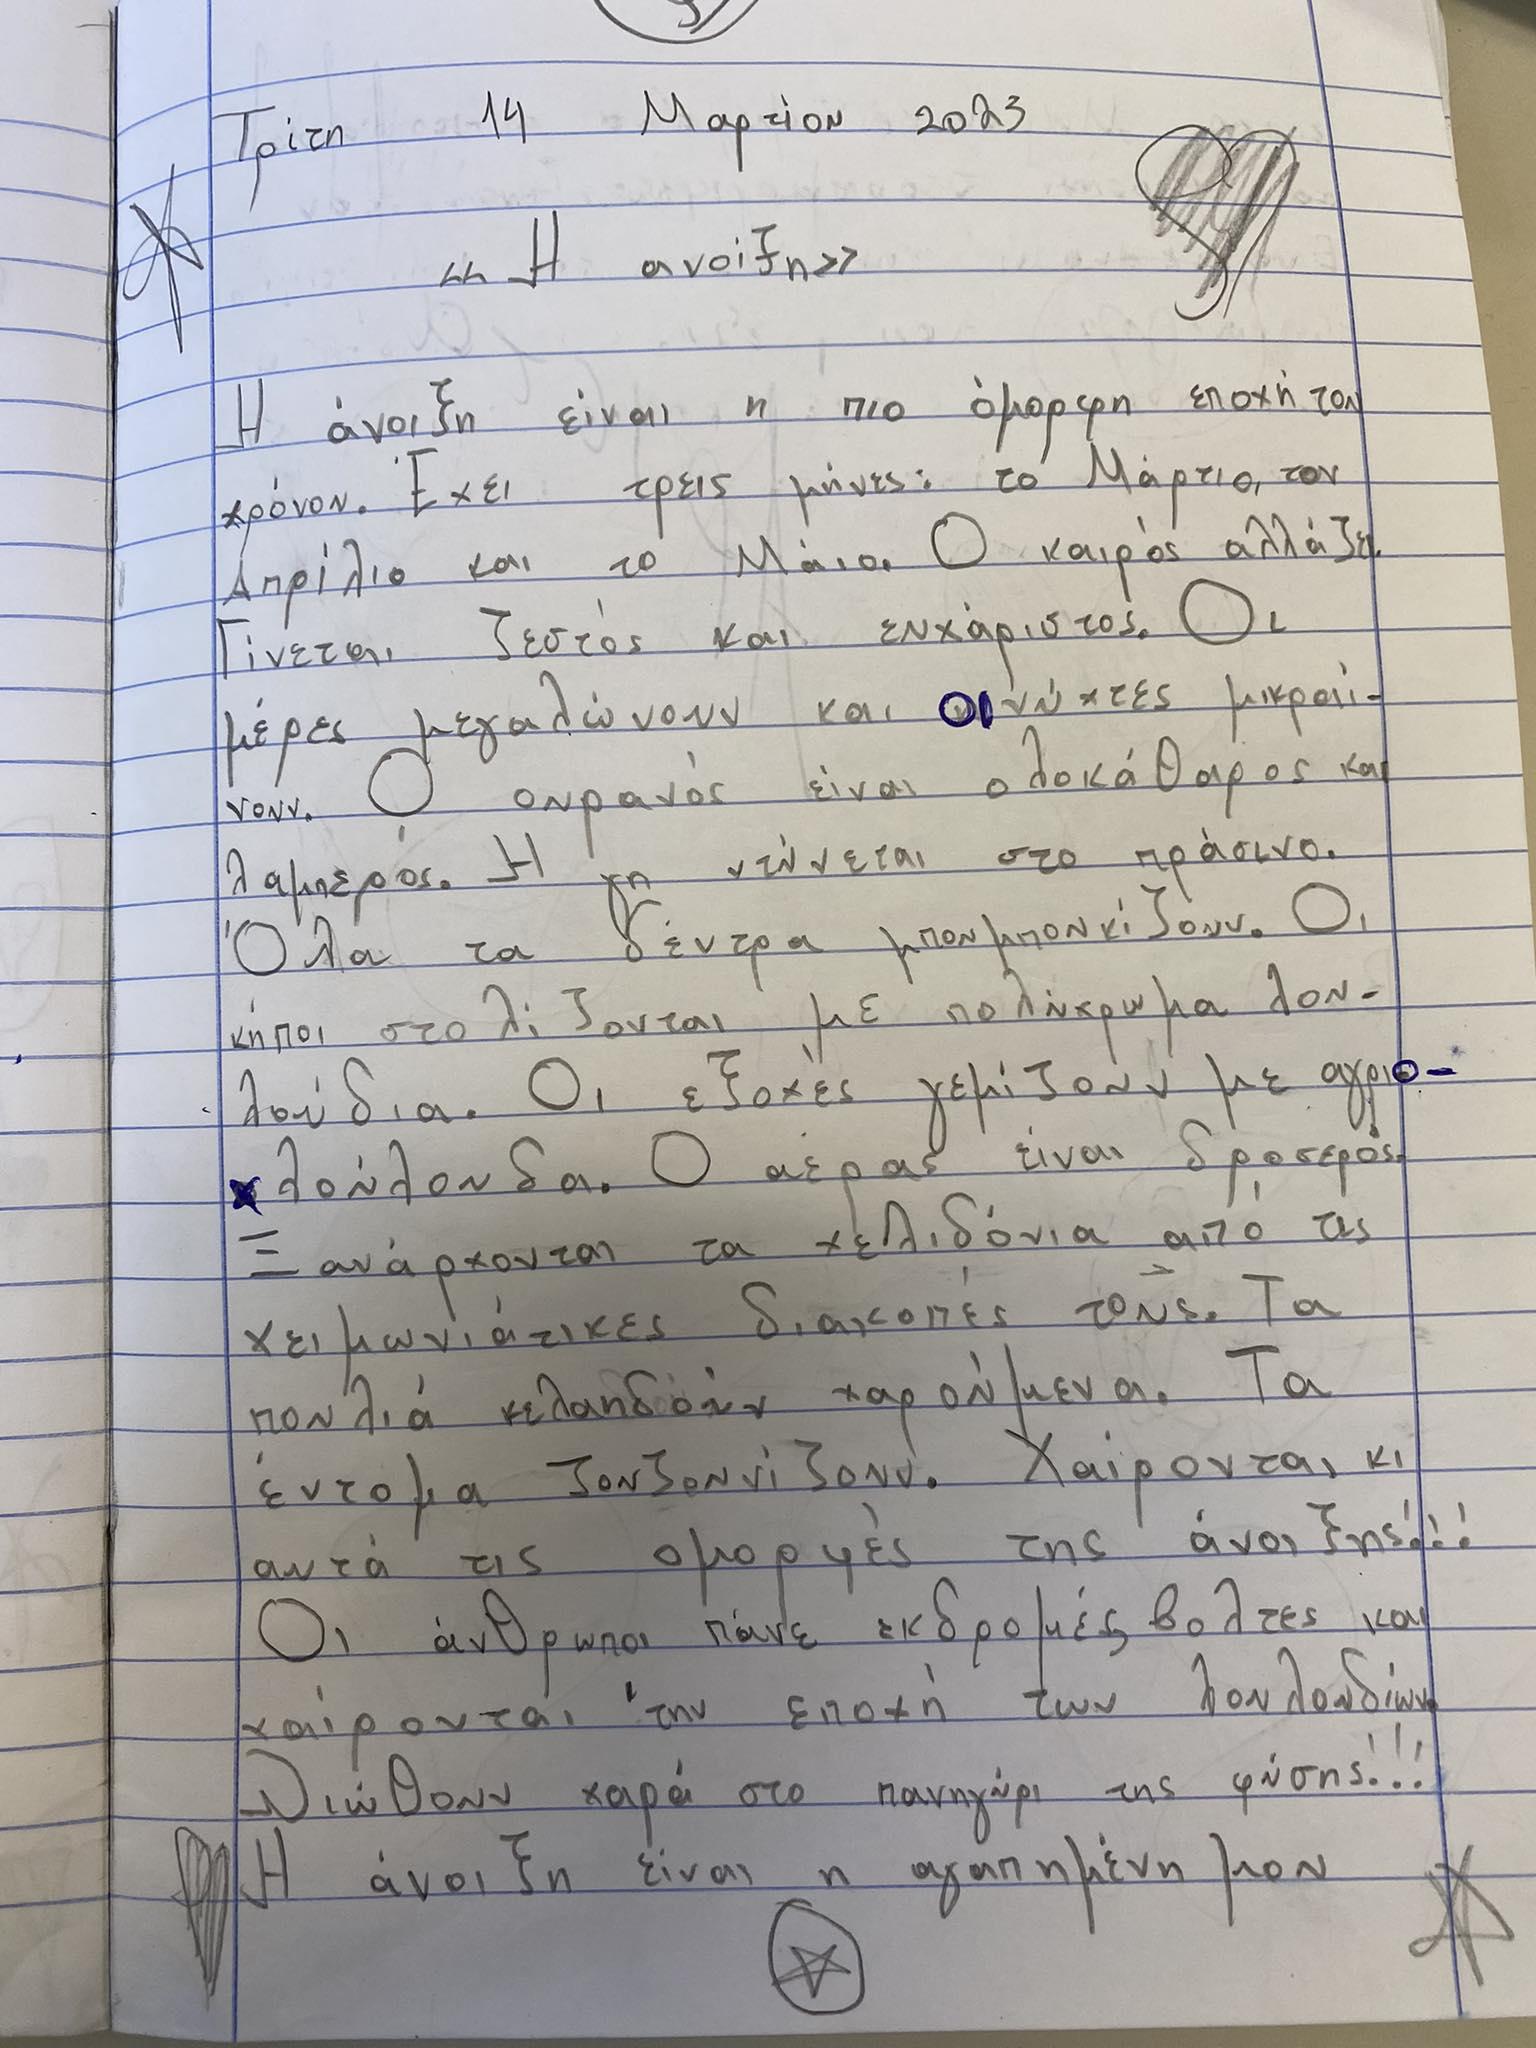 Τρίτη 14 Μαρτίου 2023
«Η ανοίξη»
Η άνοιξη είναι η πιο όμορφη εποχή του
χρόνου. Έχει τρεις μήνες: το Μάρτιο, τον
Απρίλιο και το Μάιο. Ο καιρός αλλάζει.
Γίνεται ζεστός και ευχάριστος. Οι
μέρες μεγαλώνουν και οι νύχτες μικραί-
νουν. Ο ουρανός είναι ολοκάθαρος και
λαμπερός. Η γη ντύνεται στο πράσινο.
Όλα τα δέντρα μπουμπουκίζουν. Οι
κήποι στολίζονται με πολύχρωμα λου-
λούδια. Οι εξοχές γεμίζουν με αγριο-
λούλουδα. Ο αέρας είναι δροσερός.
Ξανάρχονται τα χελιδόνια από τις
χειμωνιάτικες διακοπές τους. Τα
πουλιά κελαηδούν χαρούμενα. Τα
έντομα ζουζουνίζουν. Χαίρονται κι
αυτά τις ομορφιές της άνοιξης!!!
Οι άνθρωποι πάνε εκδρομές, βόλτες και
χαίρονται την εποχή των λουλουδιών.
Νιώθουν χαρά στο πανηγύρι της φύσης!!!
Η άνοιξη είναι η αγαπημένη μου